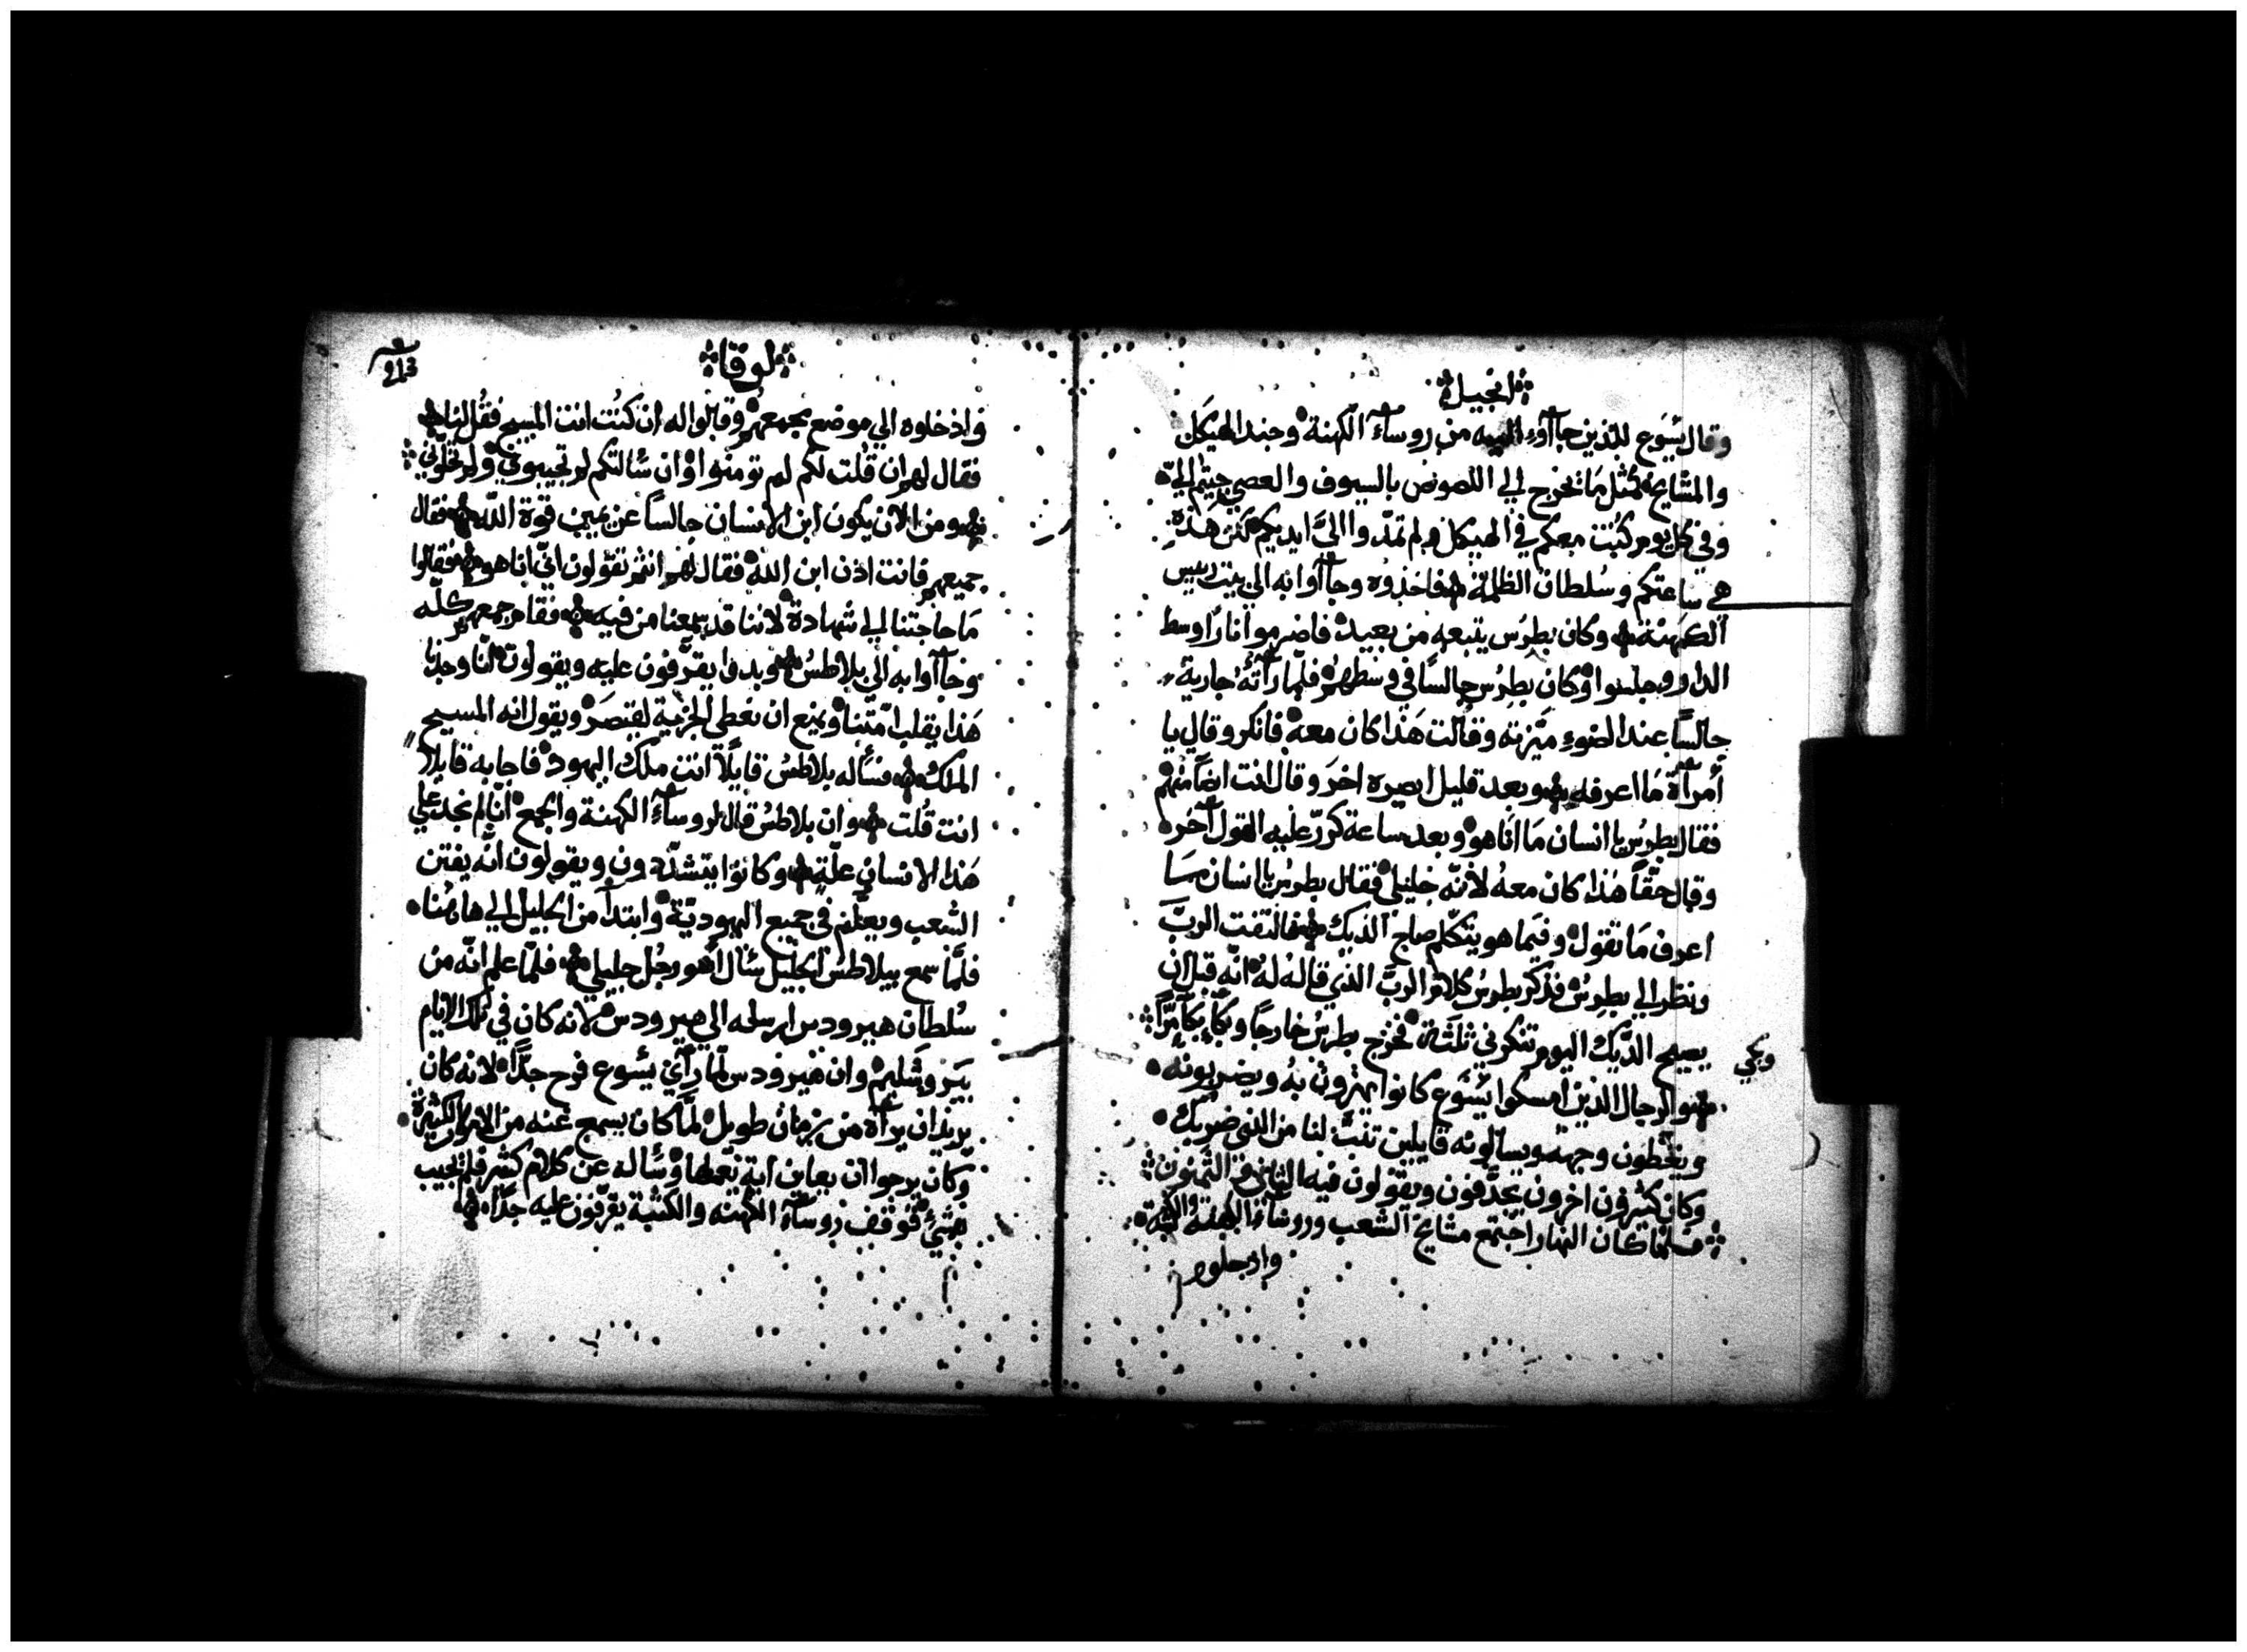 انجيل
وقال يسوع للذين جاآوء اليه من روساء الكهنة وجند الهيكل
والمشايخ مثل ما تخرج الي اللصوص بالسيوف والعصي جيتم اليّ
وفي كل يوم كنت معكم في الهيكل ولم تمدّوا اليَّ ايديكم لكن هذه
هي ساعتكم وسُلطان الظلمة فاخذوُه وجاآوا به الي بيت رييس
الكهنة وكان بطرُس يتبعه من بعيد فاضرموا نارًا وسط
الدار وجلسوا وكان بطرُس جالسًا في وسطهم فلمّا رأتهُ جارية
جالسًا عند الضوء ميّزته وقالت هَذا كان معه فانكر وقال يا
أمرأة مَا اعرفه وبعد قليل ابصره اخرَ وقال انت ايضًا منهم
فقال بطرُس يا انسان مَا انَا هو وبعد ساعة كررّ عليه القول آخر
وقال حقًّا هَذا كان معهُ لأنّه جليلي فقال بطرسُ يا انسان مَا
اعرف مَا تقول وفيَما هو يتكلّم صاح الديك فالتفت الربَّ
ونظر الي بطرسُ فذكر بطرسُ كلام الربّ الذي قالهُ لهُ انّه قبل ان
يصيح الدّيك اليوم تنكرني ثلثة فخرج بطرسُ خارجًا وبكاء بكآ مرًّا
وبكي
والرجال الذين امسكوا يسُوع كانوا يهزون بهُ ويضربونه
ويغطّون وجهه ويسالونه قايلين تنبّئ لنا من الذي ضربك
وكان كثيرون اخرون يجدّفون ويقولون فيه
فلمّا كان النهار اجتمع مشايخ الشعب وروساء الكهنة والكتبة
وادخلوه
لوقا
213
وادخلوه الي موضع مجمعهم وقالوا له ان كنُت انت المسيح فقُل لنا
فقال لهم ان قُلت لكم لم تومنوا وان سَالتكم لم تجيبوني ولم تخلّوني
ومن الان يكون ابن الانسان جالسًا عن يمين قوّة الله فقال
جميعهم فانت اذن ابن الله فقال لهم انتم تقولون انّي انا هو فقالوا
مَا حاجتنا الي شهادة لاننا قد سمعنا من فيه فقام جمعهم كلّه
وجاآوا به الي بلاطسُ وبدوا يقرّفون عليه ويقولون انّا وجدنا
هَذا يقلب امّتنا ويمنع ان نعطي الجزية لقيصَر ويقول انه المسيح
الملك فسأله بلاطسُ قايلًا انت ملك اليهود فاجابه قايلا
انت قُلت وان بلاطسُ قال لروساء الكهنة والجمع انّا لم نجد علي
هَذا الانسان علّة وكانوا يتشدّدون ويقولون انّه يفتن
الشعب ويعلّم في جميع اليهوديّة وابتدأ من الجليل الي هاهُنا
فلمَّا سمع بيلاطسُ الجليل سَال أهو رجُل جليلي فلمّا علم انّه من
سُلطان هيرودس ارسله الي هيرودس لانه كان في تلك الايام
بيَروشَليم وان هيرودس لمّا رأيَ يسُوع فرح جدًّا لانه كان
يريد ان يرآه من زمان طويل لمّا كان يسمع عَنه من الامور الكثيرة
وكان يرجوا ان يعاين اية يعملها وسَأله عن كلام كثير فلم يجيب
بشيءٍ فوقف روساء الكهنه والكتبة يقرّفون عليه جدًّا